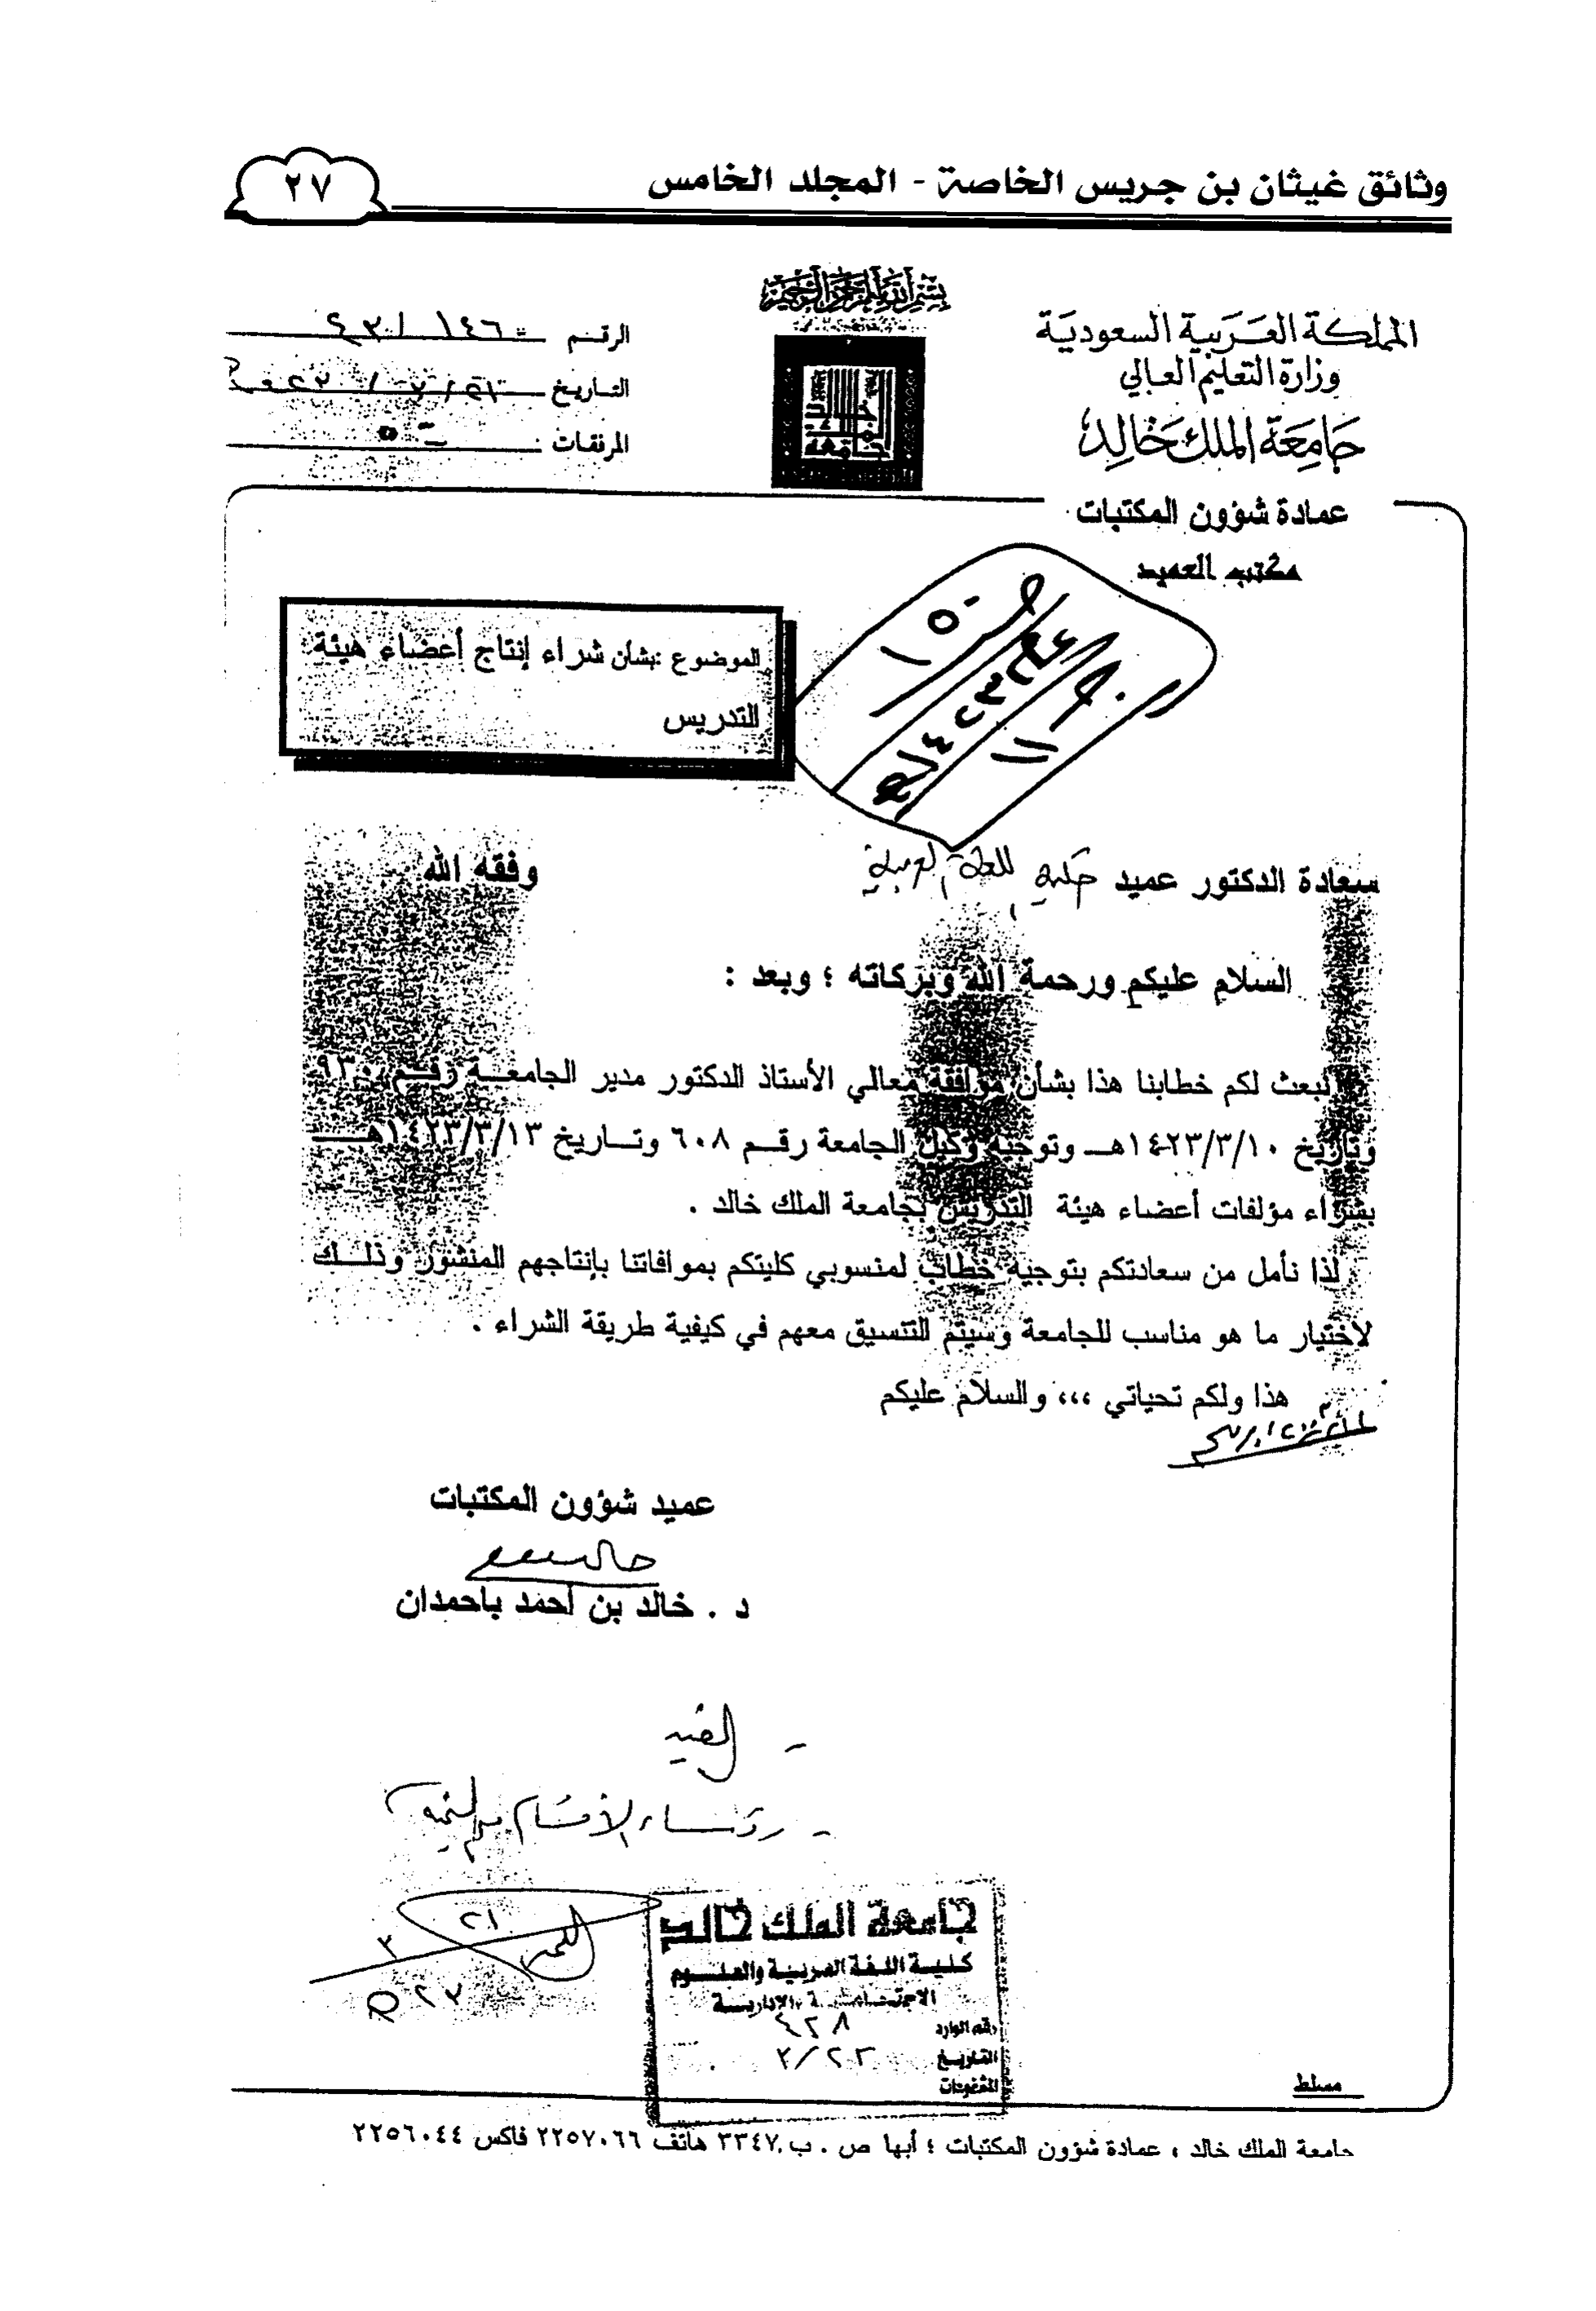 وثائق غيثان بن جريس الخاصة - المجلد الخامس
٢٧
بسم الله الرحمن الرحيم
المملكة العربية السعودية
وزارة التعليم العالي
جامعة الملك خالد
عمادة شؤون المكتبات
مكتب العميد
الرقم
التاريخ
المرفقات
الموضوع :بشأن شراء إنتاج أعضاء هيئة
التدريس
سعادة الدكتور عميد كلية اللغة العربية وفقه الله
السلام عليكم ورحمة الله وبركاته ؛ وبعد :
نبعث لكم خطابنا هذا بشأن موافقة معالي الأستاذ الدكتور مدير الجامعـة رقـم ٩٣٠
وتاريخ ١٤٢٣/٣/١٠هـ وتوجيه وكيل الجامعة رقم ٦٠٨ وتـاريخ ١٤٢٣/٣/١٣هـ
بشراء مؤلفات أعضاء هيئة التدريس بجامعة الملك خالد .
لذا نأمل من سعادتكم بتوجيه خطاب لمنسوبي كليتكم بموافاتنا بإنتاجهم المنشور وذلـك
لاختيار ما هو مناسب للجامعة وسيتم التنسيق معهم في كيفية طريقة الشراء .
هذا ولكم تحياتي ،،، والسلام عليكم
عميد شؤون المكتبات
د . خالد بن أحمد باحمدان
جامعة الملك خالد
كلية اللغة العربية والعلوم
الاجتماعية والإدارية
رقم الوارد ٤٢٨
التاريخ ٣/٢٣
المشفوعات
مسلط
جامعة الملك خالد ، عمادة شؤون المكتبات ؛ أبها ص . ب.٣٣٤٧ هاتف ٢٢٥٧٠٦٦ فاكس ٢٢٥٦٠٤٤